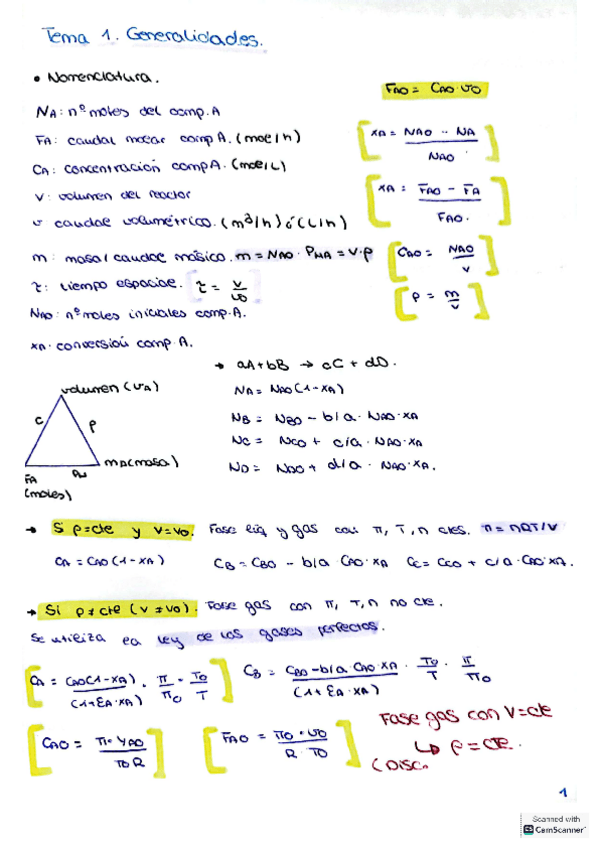 Tema 1. Generalidades.
• Nomenclatura.
FAO = CAO·υO
NA: nº moles del comp. A
FA: caudal molar comp A. (mol/h)
xA = NAO - NA / NAO
CA: concentración comp A. (mol/L)
V: volumen del reactor
xA = FAO - FA / FAO.
υ caudal volumétrico. (m³/h) ó (L/h)
m: masa/caudal másico. m = NAO· PMA = V·ρ
CAO = NAO / V
τ: tiempo espacial. τ = V / υO
ρ = m / V
NAO: nº moles iniciales comp. A.
xA: conversión comp A.
→ aA + bB → cC + dD.
volumen (VA)
NA = NAO (1-xA)
NB = NBO - b/a · NAO·xA
C
ρ
NC = NCO + c/a · NAO·xA
mA (masa)
ND = NDO + d/a · NAO·xA.
FA
(moles)
→ Si ρ=cte y V=Vo. Fase líq y gas con π, T, n ctes. π = nRT/V
CA = CAO (1-xA) CB = CBO - b/a CAO·xA CC = CCO + c/a · CAO·xA.
→ Si ρ ≠ cte (V ≠ Vo). Fase gas con π, T, n no cte.
Se utiliza la ley de los gases perfectos.
CA = CAO(1-xA) / (1+εA·xA) · π / πO · TO / T
CB = CBO - b/a CAO·xA / (1+εA·xA) · TO / T · π / πO
CAO = π·yAO / TO R
FAO = πO·υO / R·TO
Fase gas con V=cte
↳ ρ = cte.
1
Scanned with
CamScanner